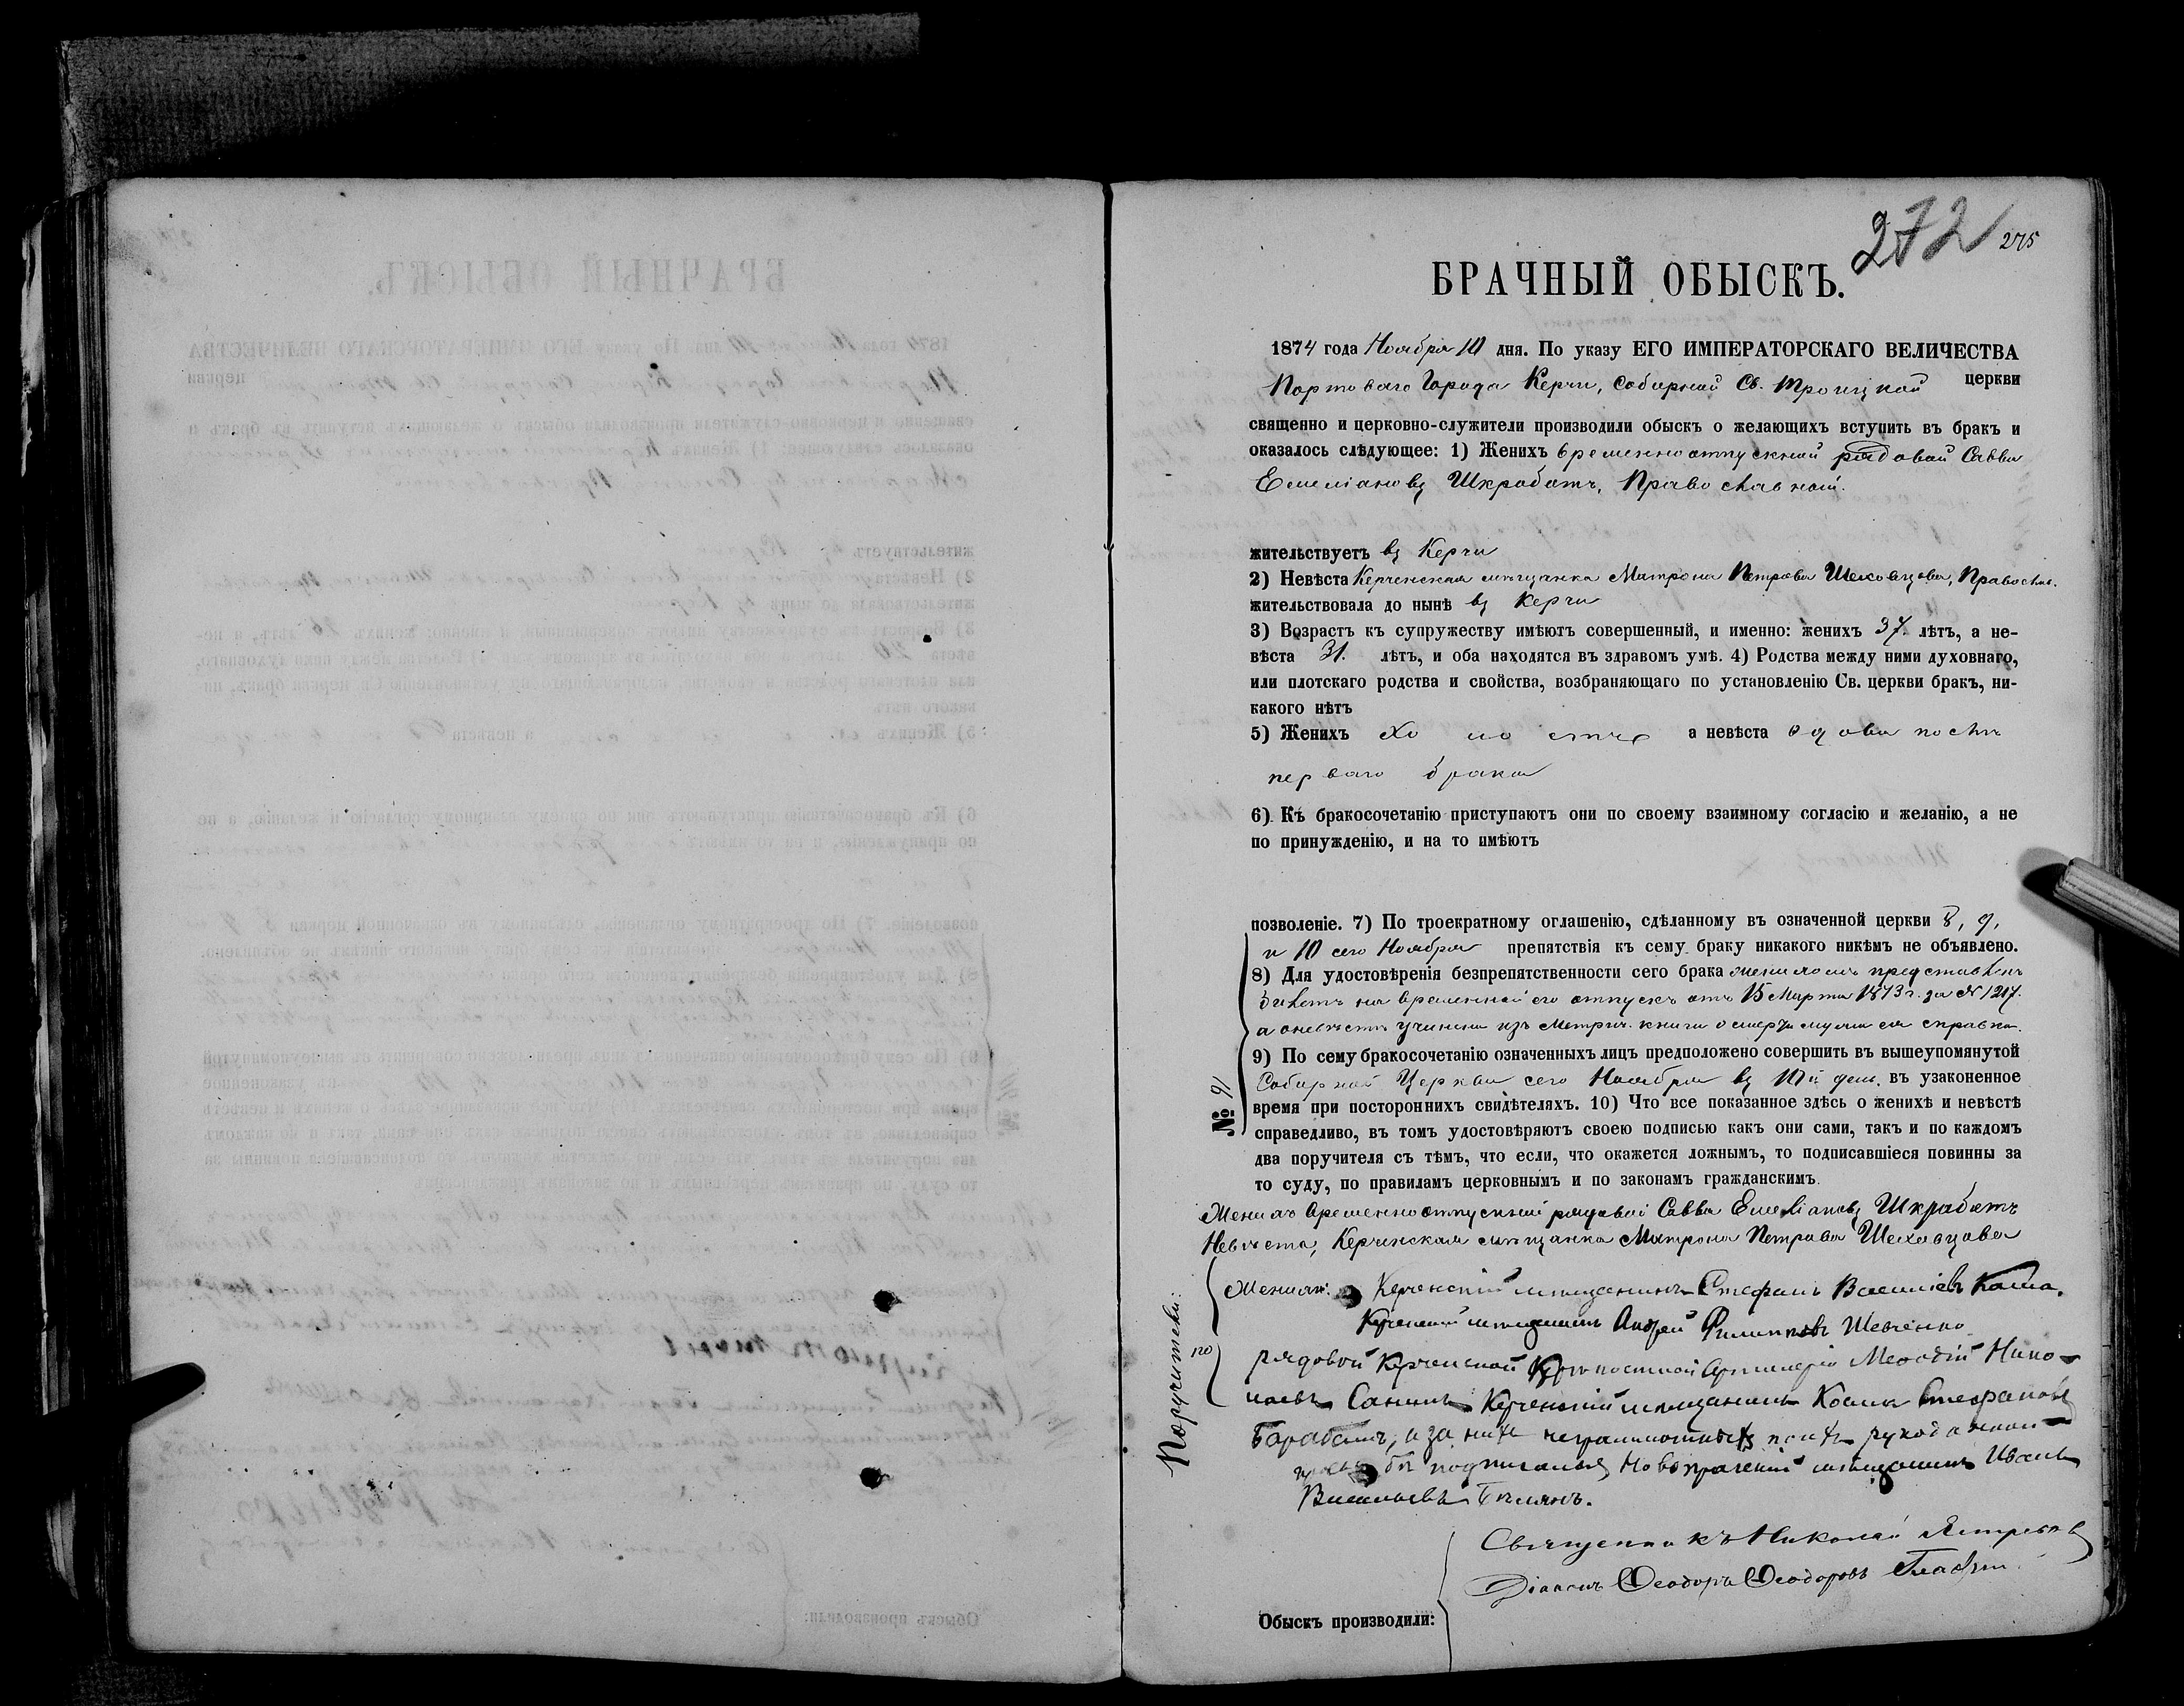 272 275
БРАЧНЫЙ ОБЫСКЪ.
1874 года Ноября 10 дня. По указу ЕГО ИМПЕРАТОРСКАГО ВЕЛИЧЕСТВА
Портоваго Города Керчи, Соборной Св. Троицкой церкви
священно и церковно-служители производили обыскъ о желающихъ вступить въ бракъ и
оказалось слѣдующее: 1) Женихъ временноотпускной рядовой Савва
Емеліановъ Шкработъ, Православный.
жительствуетъ въ Керчи
2) Невѣста Керченская мѣщанка Матрона Петрова Шеховцова, Православ.
жительствовала до нынѣ въ Керчи
3) Возрастъ къ супружеству имѣютъ совершенный, и именно: женихъ 37. лѣтъ, а не-
вѣста 31. лѣтъ, и оба находятся въ здравомъ умѣ. 4) Родства между ними духовнаго,
или плотскаго родства и свойства, возбраняющаго по установленію Св. церкви бракъ, ни-
какого нѣтъ
5) Женихъ холостъ а невѣста вдова послѣ
перваго брака
6) Къ бракосочетанію приступаютъ они по своему взаимному согласію и желанію, а не
по принужденію, и на то имѣютъ
позволеніе. 7) По троекратному оглашенію, сдѣланному въ означенной церкви 8, 9,
и 10 сего Ноября препятствія къ сему браку никакого никѣмъ не объявлено.
8) Для удостовѣренія безпрепятственности сего брака женихомъ представленъ
билетъ на временной его отпускъ отъ 15 Марта 1873 г. за № 1217.
а о невѣстѣ учинена изъ Метрич. книги о смерти мужа ея справка.
9) По сему бракосочетанію означенныхъ лицъ предположено совершить въ вышеупомянутой
Соборной Церкви сего Ноября въ 10й день. въ узаконенное
№ 91
время при постороннихъ свидѣтеляхъ. 10) Что все показанное здѣсь о женихѣ и невѣстѣ
справедливо, въ томъ удостовѣряютъ своею подписью какъ они сами, такъ и по каждомъ
два поручителя съ тѣмъ, что если, что окажется ложнымъ, то подписавшіеся повинны за
то суду, по правиламъ церковнымъ и по законамъ гражданскимъ.
Женихъ временноотпускной рядовой Савва Емеліановъ Шкработъ
Невѣста, Керченская мѣщанка Матрона Петрова Шеховцова
Поручители:
по
Женихѣ: Керченскій мѣщанинъ Стефанъ Василіевъ
Керченскій мѣщанинъ Андрей Филиповъ Шевченко
рядовой Керченской Крѣпостной Артилеріи Нико-
лаевъ Керченскій мѣщанинъ Косма Стефановъ
а за нихъ неграмотныхъ
подписался мѣщанинъ Иванъ
Васильевъ
Священникъ Николай
Діаконъ Ѳеодоръ Ѳеодоровъ
Обыскъ производили: